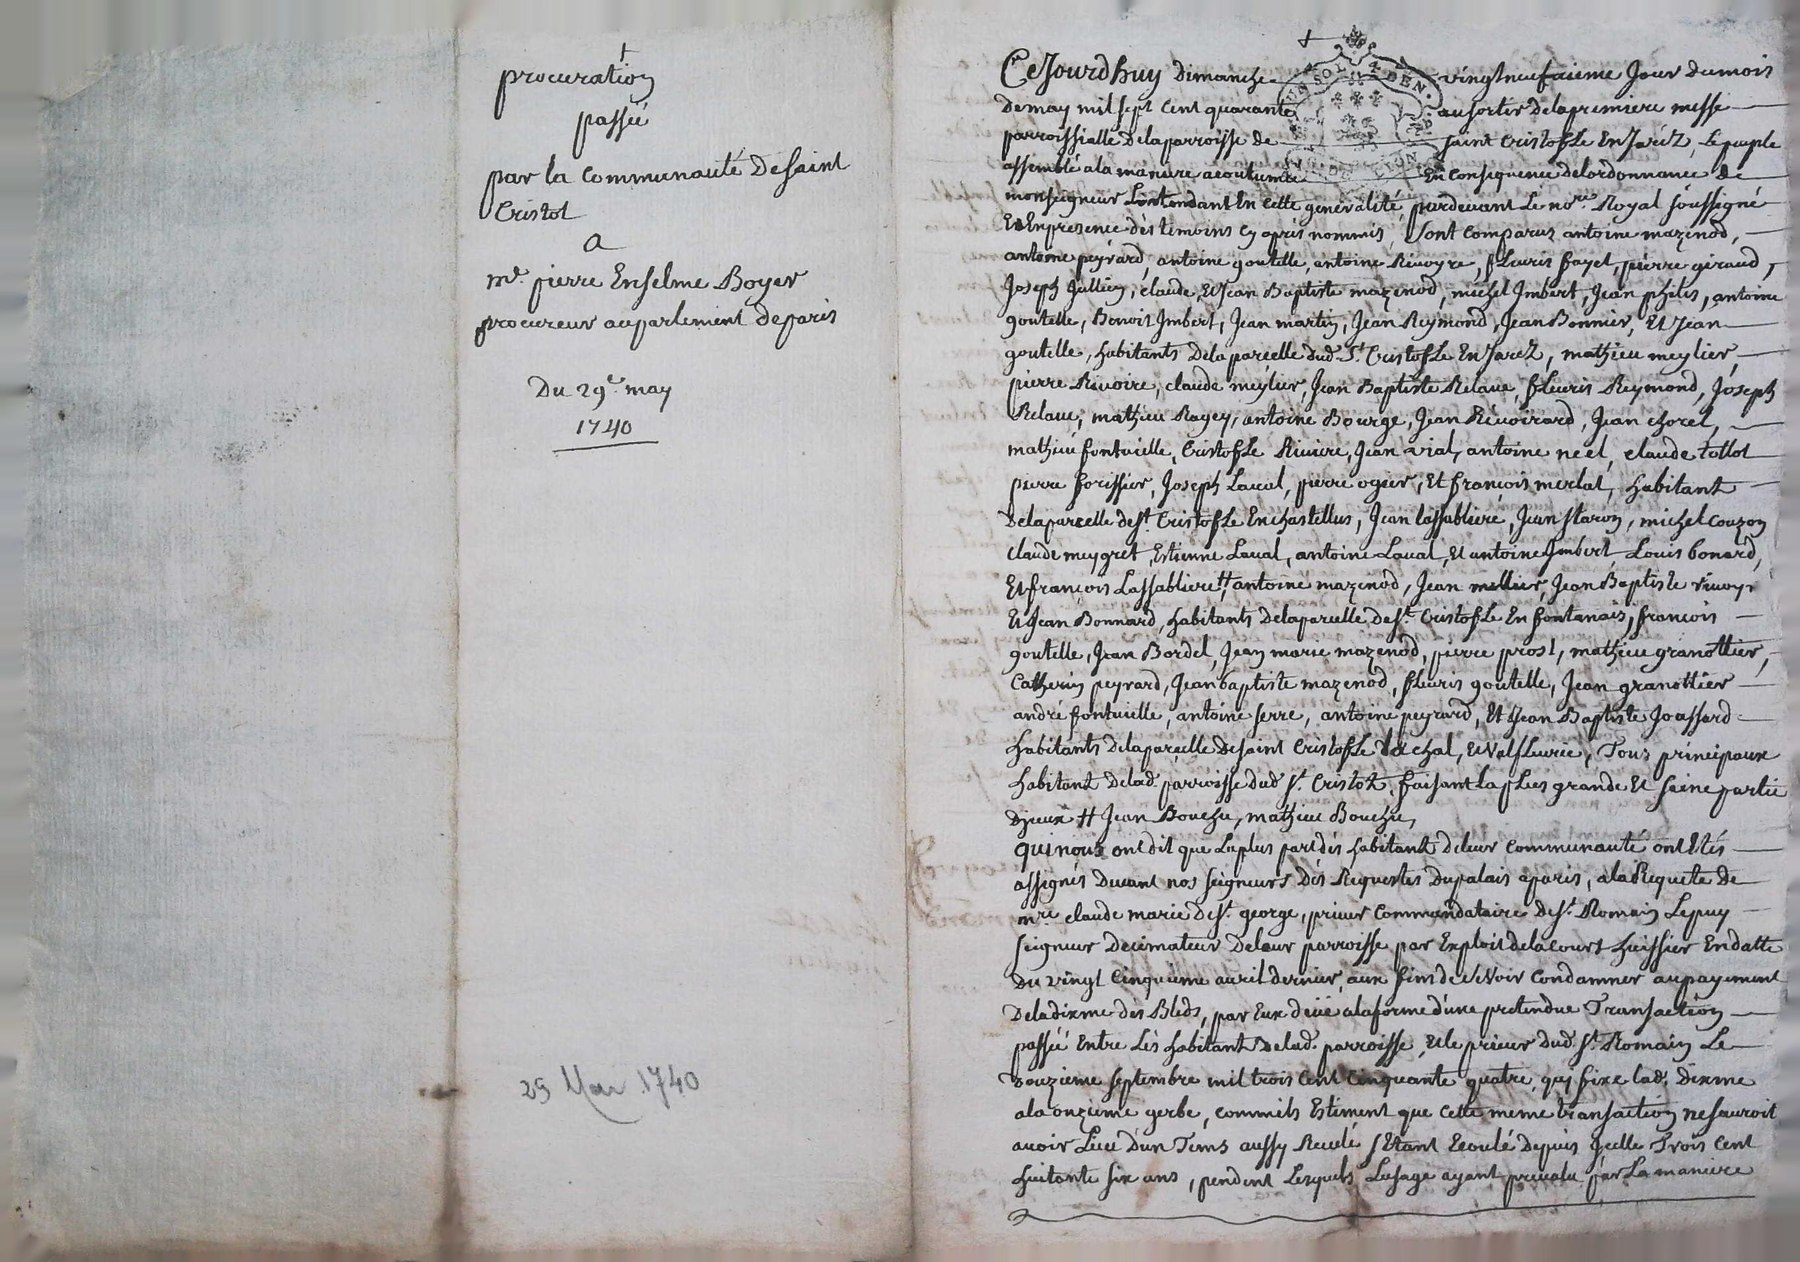 procuration
passée
par la Communauté De saint
Cristot
a
mr. pierre Enselme Boyer
procureur auparlement deparis
Du 29e. may
1740
29 Mai 1740
Cejourdhuy Dimanche vingtneufvieme Jour dumois
demay mil sept Cent quarante ausortir delapremiere messe
parroissialle Delaparroisse de saint Cristofle EnJarez, Le peuple
assemblé ala maniere acoutumée En Consequence delordonnance de
monseigneur LIntendant En Cette generalité, pardevant Le nore. Royal soussigné
Et Enpresence dès temoins Cy après nommés, sont Comparus antoine mazenod,
antoine peyrard, antoine goutelle, antoine Rivoyre, fleuris fayet, pierre giraud,
Joseph Jullien, claude, Et Jean Baptiste mazenod, michel Imbert, Jean philis, antoine
goutelle, Benoit Imbert, Jean martin, Jean Reymond, Jean Bonnier, Et Jean
goutelle, habitants Delaparcelle dud. St. Cristofle En Jarez, mathieu meylier,
pierre Rivoire, claude meylier, Jean Baptiste Relave, fleuris Reymond, Joseph
Relave, mathieu Ragey, antoine Bourge, Jean Rivoirard, Jean chorel,
mathieu fontvielle, Cristofle Riviere, Jean vial, antoine neel, claude tollot
pierre forissier, Joseph Laval, pierre ogier, Et françois merlat, habitant
Delaparcelle de st Cristofle Enchastellus, Jean lassabliere, Jean staron, michel Couzon
claude meygret, Estienne Laval, antoine Laval, Et antoine Imbert, Louis bonard,
Et françois Lassabliere, # antoine mazenod, Jean mellier, Jean Baptiste rivoyr
Et Jean Bonnard, habitants delaparcelle de st. Cristofle En fontanais, françois
goutelle, Jean Bordel, Jean marie mazenod, pierre prost, mathieu granottier,
Catherin peyrard, Jean baptiste mazenod, fleuris goutelle, Jean granottier
andré fontvielle, antoine serre, antoine peyrard, Et Jean Baptiste Joassard
habitants delaparcelle de saint Cristofle la chal, Et valfleurie, Tous principaux
habitant delad. parroisse dud. st. Cristot, faisant la plus grande Et saine partie
djceux # Jean Bouchu, mathieu Bouchu,
qui nous ont dit que Laplus part dès habitant deleur Communauté ont Etés
assignés Devant nos seigneurs dès Requestes Dupalais aparis, ala Requete De
mre claude marie De st. george, prieur Commandataire de st. Romain Lepuy
seigneur Decimateur Deleur parroisse par Exploit delacourt huissier Endatte
Du vingt Cinquieme avril dernier, aux fins de se voir Condamner aupayement
Deladixme dès Bleds, par Eux deüe alaforme d'une pretendue Transaction
passée Entre Lès habitant delad. parroisse, Et le prieur dud. st. Romain Le
Douzieme septembre mil trois Cent Cinquante quatre, quj fixe lad. dixme
ala onzieme gerbe, commils Estiment que Cette meme transaction ne sauroit
avoir Lieu D'un Tems aussy Reculé s'Etant Ecoulé depuis Jcelle Trois Cent
huitante six ans, pendent Lesquels Lusage ayant prevalu par La maniere